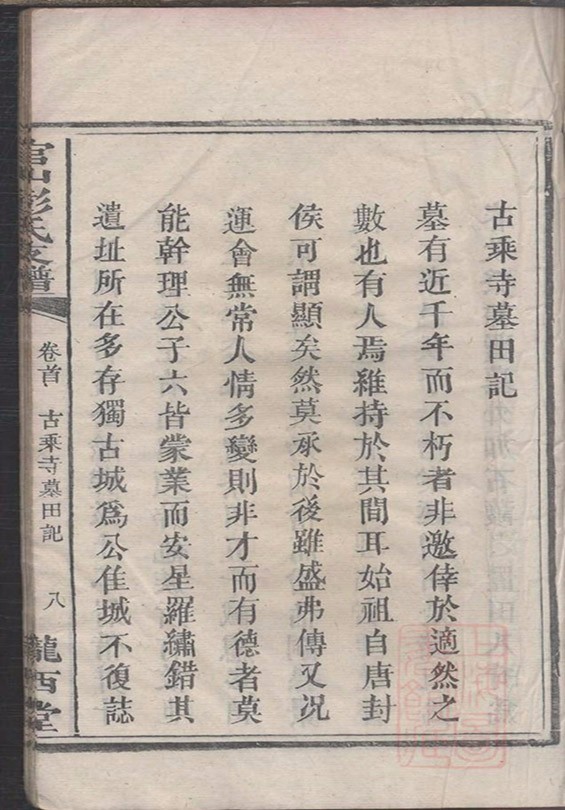 古乘寺墓田記
墓有近千年而不朽者非邀倖於適然之
數也有人焉維持於其間耳始祖自唐封
侯可謂顯矣然莫承於後雖盛弗傳又況
運會無常人情多變則非才而有德者莫
能幹理公子六皆蒙業而安星羅繡錯其
遺址所在多存獨古城爲公佳城不復誌
宮山彭氏支譜
卷首
古乘寺墓田記
八
隴西堂